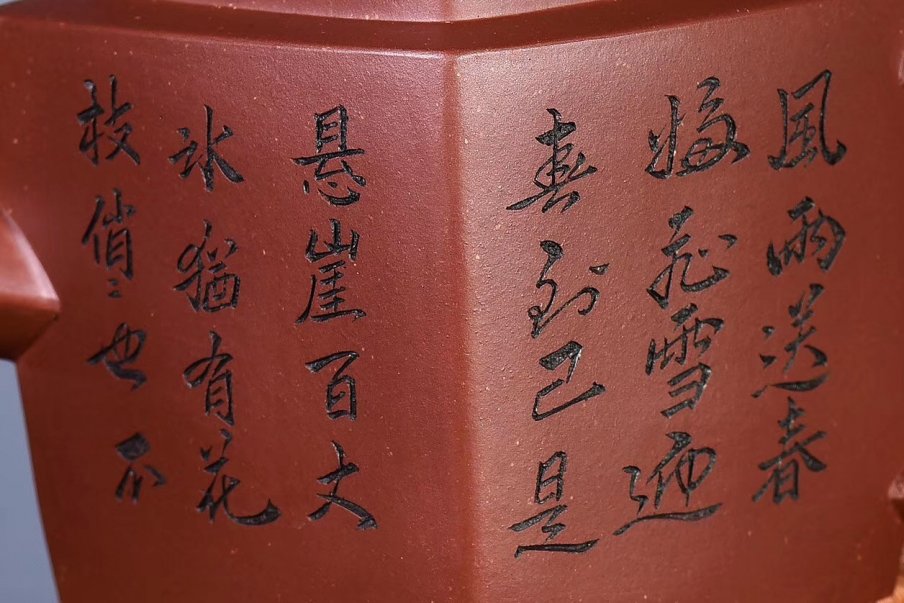 風雨送春
歸飛雪迎
春到已是
悬崖百丈
冰猶有花
枝俏々也不